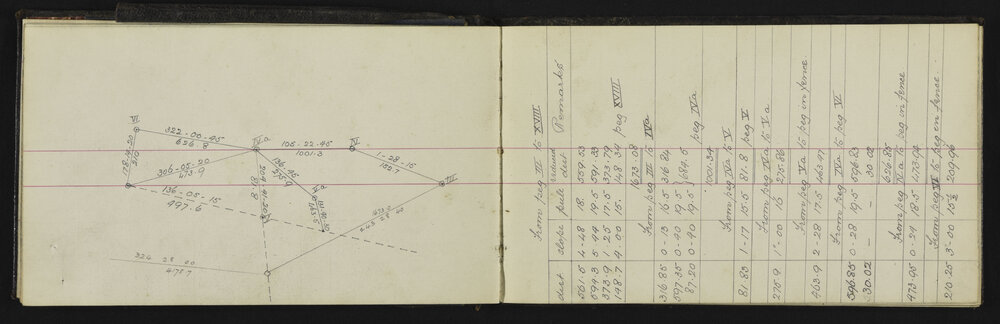 VI
322-00-45
626.8
IVa
108-22-45
1001.3
IV
1-28-15
1886.7
III
306-05-20
473.9
136-05-15
497.6
Va
V
81.8
463.5
324 28 00
4178.7
From peg III to XVIII
dist slope pull reduced dist Remarks
561.5 4-48 18. 559.53
594.3 5-44 19.5 591.33
373.9 1-25 17.5 373.79
148.7 4-00 15. 148.34 peg XVIII
1673.08
From peg III to IVa
316.85 0-13 16.5 316.84
597.35 0-40 19.5
87.20 0-40 19.5 } 684.5 peg IVa
1001.34
From peg IVa to V
81.83 1-17 15.5 81.8 peg V
From peg IVa to Va
275.9 1-00 16 275.86
From peg Va to peg in fence
463.9 2-28 17.5 463.47
From peg IVa to peg VI
596.85 0-28 19.5 596.83
30.02 - - 30.02
626.85
From peg IVa to peg in fence
473.95 0-24 18.5 473.94
From peg VI to peg in fence
210.25 3-00 15½ 209.96